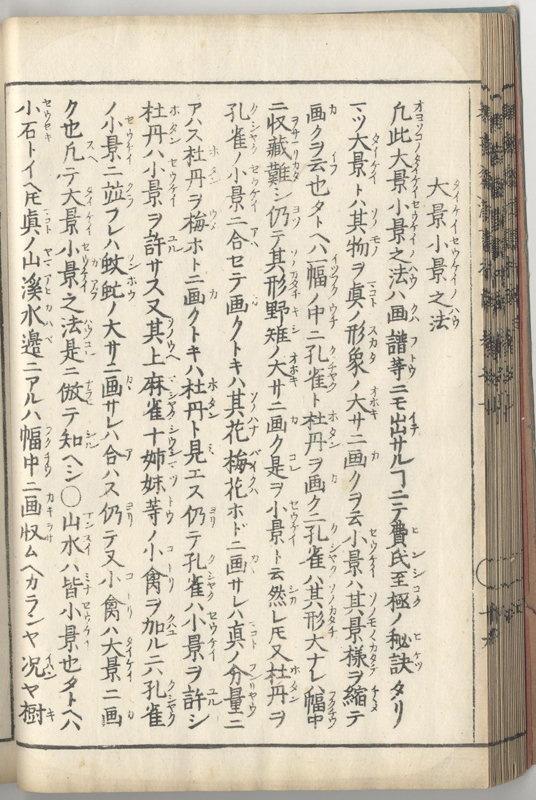 大景小景之法
凡此大景小景之法ハ画譜等ニモ出サルヿニテ費氏至極ノ秘訣タリ
一ツ大景トハ其物ヲ真ノ形象ノ大サニ画クヲ云小景ハ其景様ヲ縮テ
画クヲ云也タトヘハ一幅ノ中ニ孔雀ト杜丹ヲ画クニ孔雀ハ其形大ナレハ幅中
ニ収蔵難シ仍テ其形野雉ノ大サニ画ク是ヲ小景ト云然レ𪜈又杜丹ヲ
孔雀ノ小景ニ合セテ画クトキハ其花梅花ホドニ画サレハ真ノ分量ニ
アハス杜丹ヲ梅ホトニ画クトキハ杜丹ト見エス仍テ孔雀ハ小景ヲ許シ
杜丹ハ小景ヲ許サス又其上麻雀十姉妹等ノ小禽ヲ加ルニハ孔雀
ノ小景ニ並フレハ蚊虻ノ大サニ画サレハ合ハス仍テ又小禽ハ大景ニ画
ク也凡テ大景小景之法是ニ倣テ知ヘシ〇山水ハ皆小景也タトヘハ
小石トイヘ𪜈真ノ山溪水邊ニアルハ幅中ニ画収ムヘカランヤ况ヤ樹